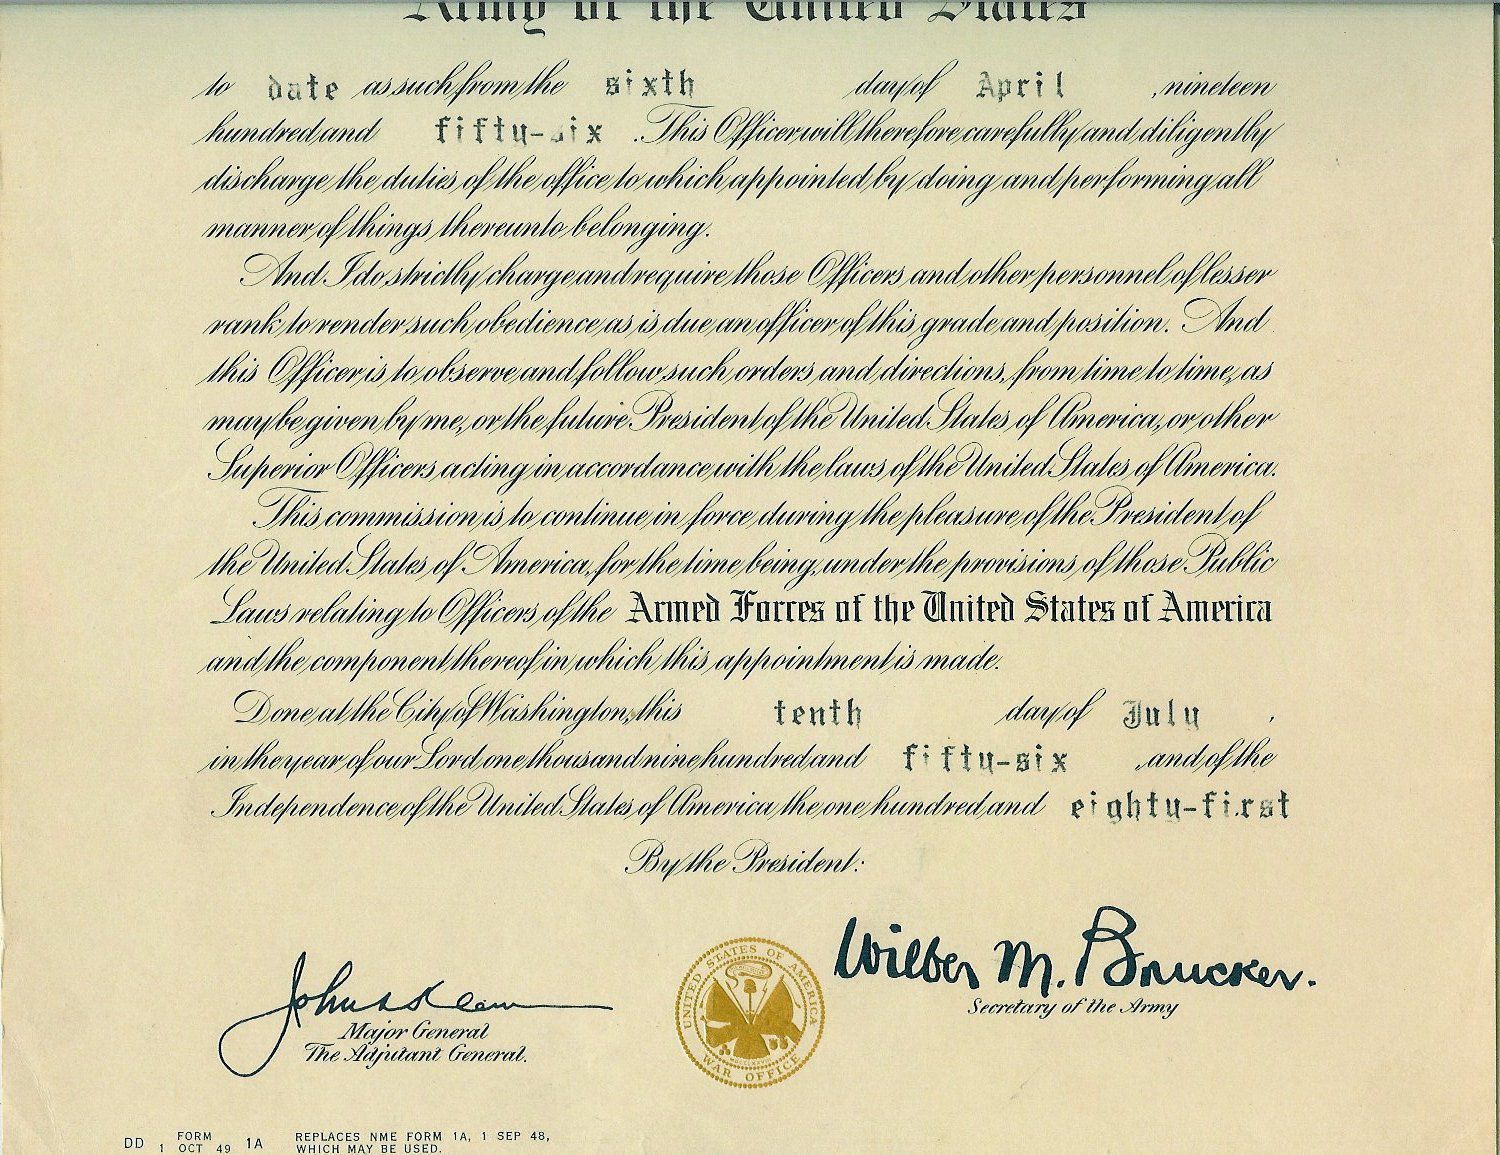 Army of the United States
to date as such from the sixth day of April , nineteen
hundred and fifty-six . This Officer will therefore carefully and diligently
discharge the duties of the office to which appointed by doing and performing all
manner of things thereunto belonging.
And I do strictly charge and require those Officers and other personnel of lesser
rank to render such obedience as is due an officer of this grade and position. And
this Officer is to observe and follow such orders and directions, from time to time, as
may be given by me, or the future President of the United States of America, or other
Superior Officers acting in accordance with the laws of the United States of America.
This commission is to continue in force during the pleasure of the President of
the United States of America, for the time being, under the provisions of those Public
Laws relating to Officers of the Armed Forces of the United States of America
and the component thereof in which this appointment is made.
Done at the City of Washington, this tenth day of July ,
in the year of our Lord one thousand nine hundred and fifty-six , and of the
Independence of the United States of America the one hundred and eighty-first
By the President:
Wilber M. Brucker.
Secretary of the Army
John A. Klein
Major General
The Adjutant General.
UNITED STATES OF AMERICA
WAR OFFICE
DD FORM 1 OCT 49 1A REPLACES NME FORM 1A, 1 SEP 48,
WHICH MAY BE USED.